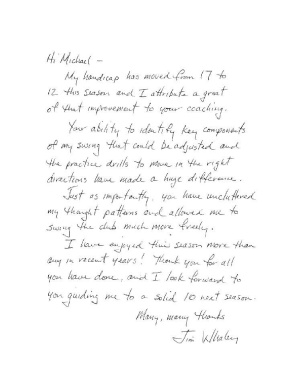 Hi Michael –
My handicap has moved from 17 to
12 this season and I attribute a great
of that improvement to your coaching.
Your ability to identify key components
of my swing that could be adjusted and
the practice drills to move in the right
directions have made a huge difference.
Just as importantly, you have uncluttered
my thought patterns and allowed me to
swing the club much more freely.
I have enjoyed this season more than
any in recent years! Thank you for all
you have done, and I look forward to
you guiding me to a solid 10 next season.
Many, many thanks
Jim Whaley